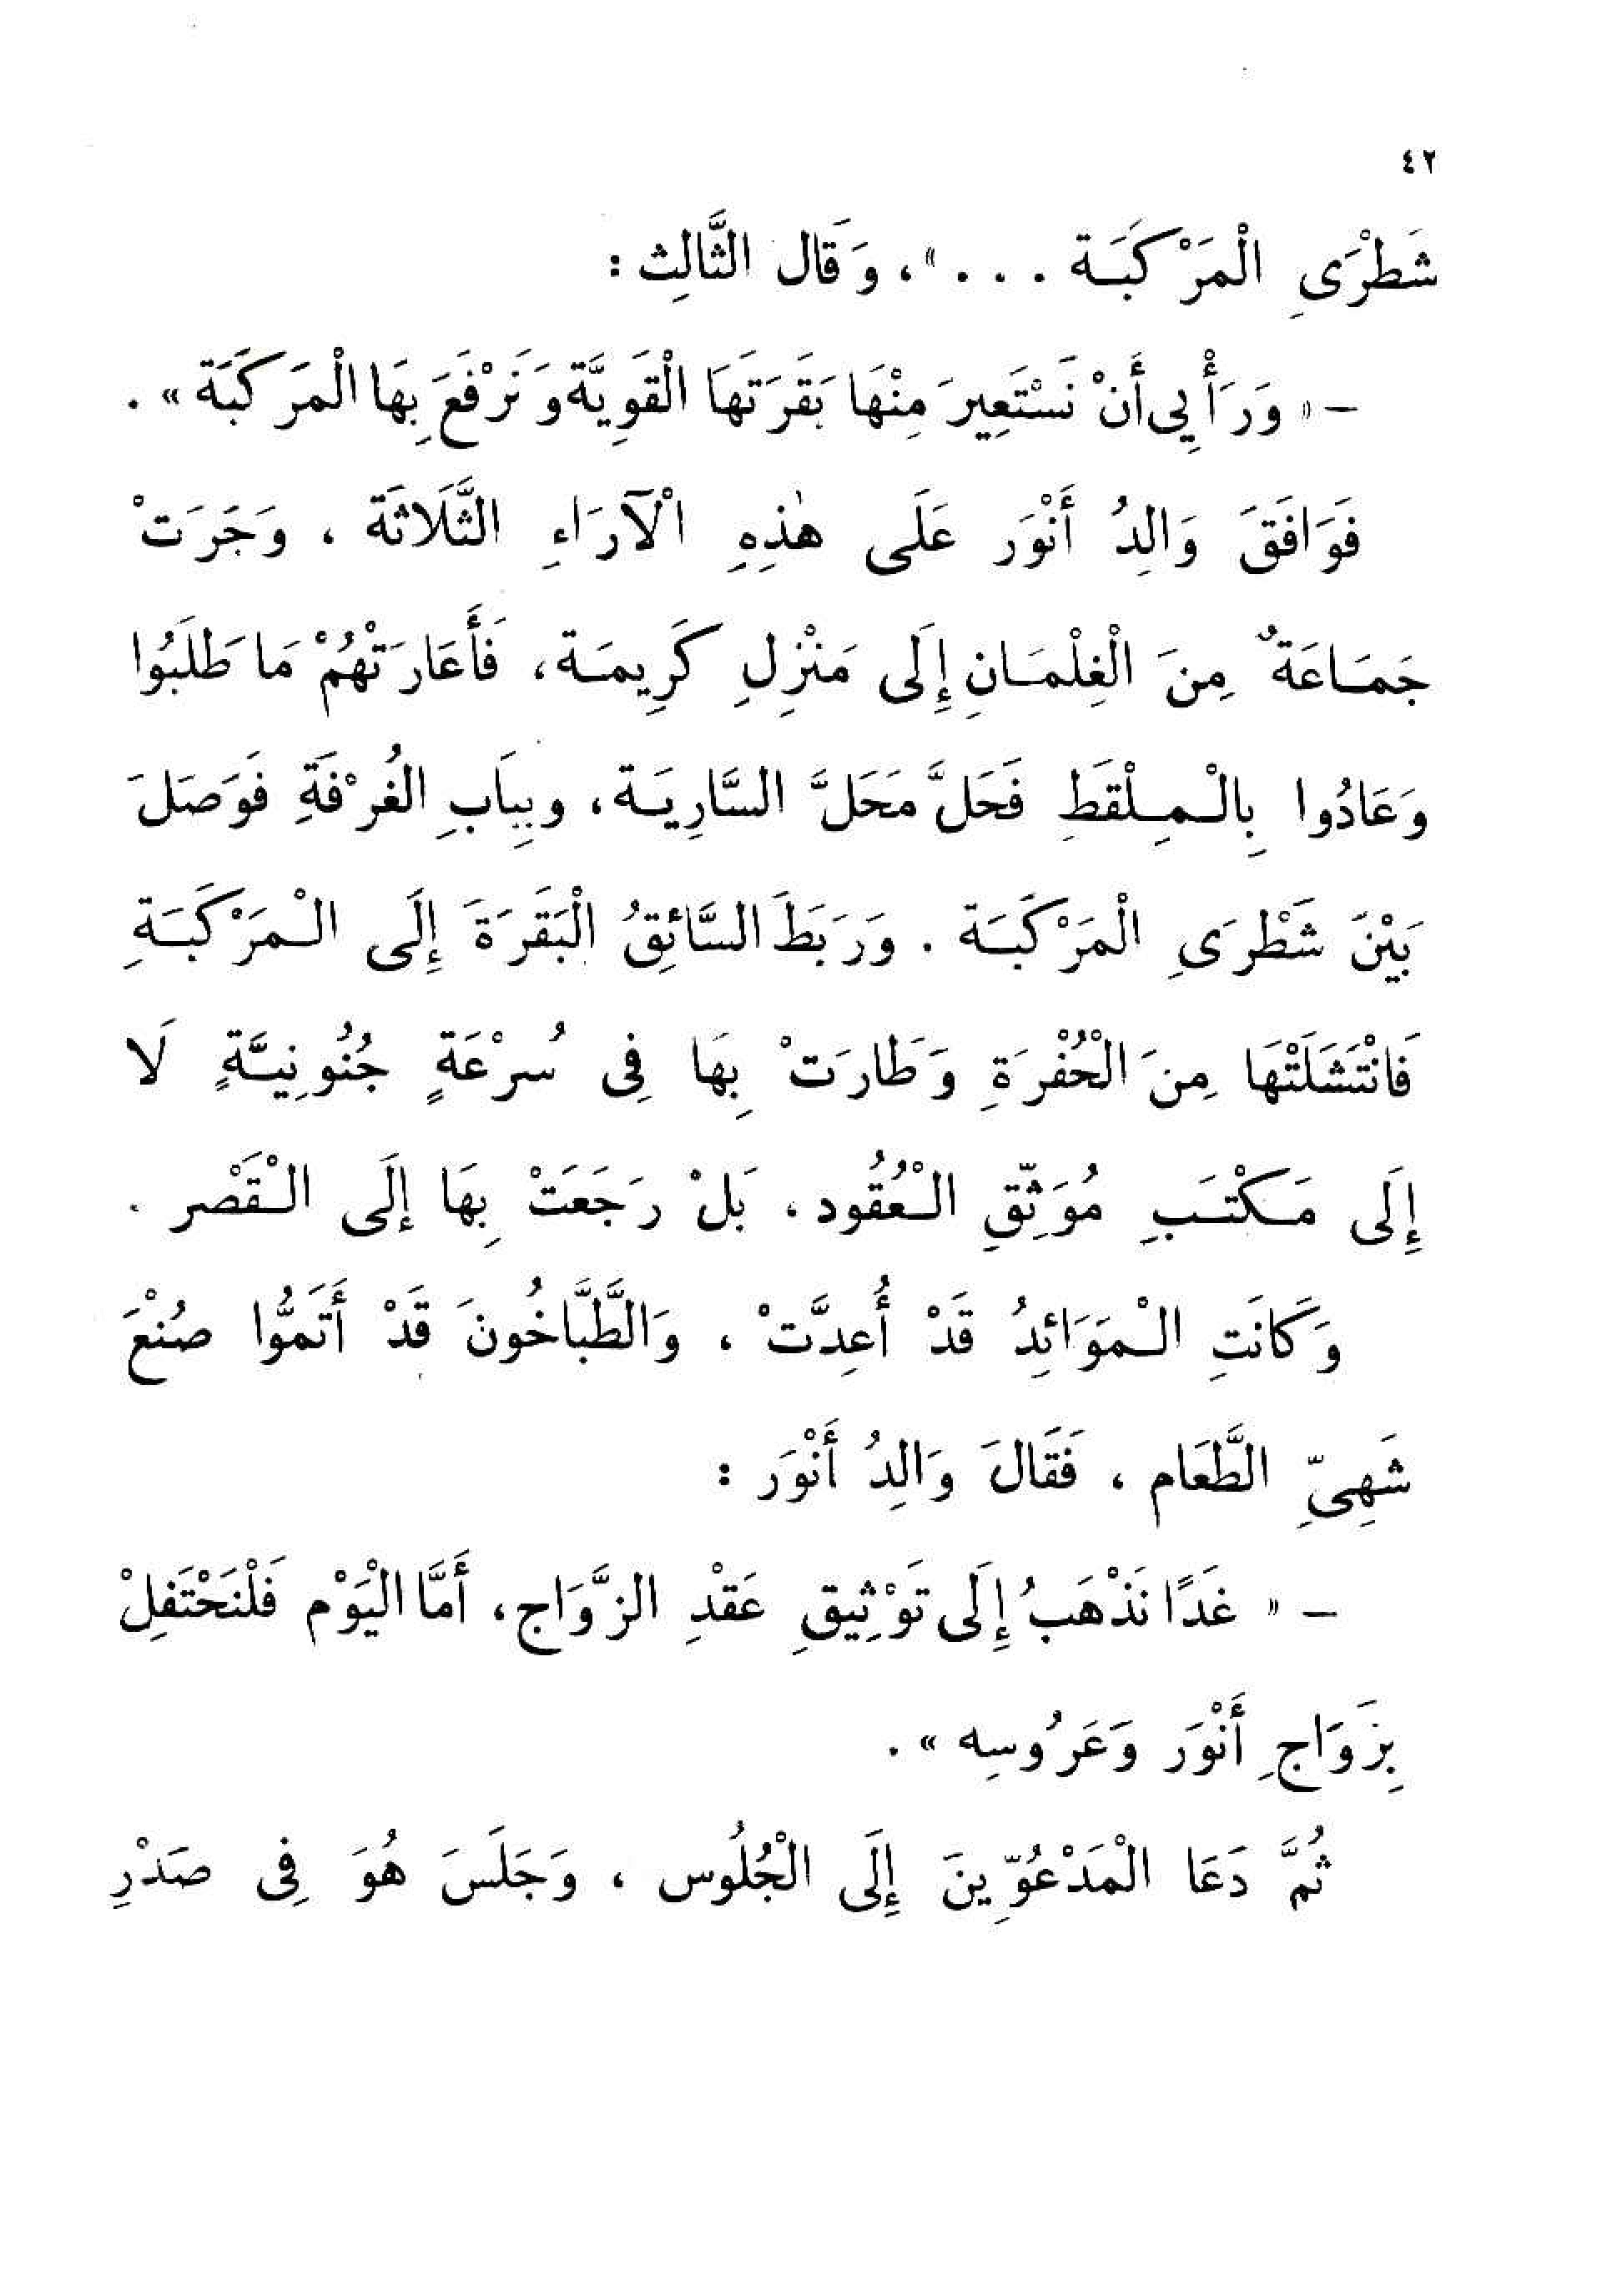 ٤٢
شَطْرَىِ الْمَرْكَبَة . . . »، وَقَال الثَّالِث :
– « وَرَأْيِى أَنْ نَسْتَعِيرَ مِنْهَا بَقَرَتَهَا الْقَوِيَّة وَنَرْفَعَ بِهَا الْمَرَكَبَة » .
فَوَافَقَ وَالِدُ أَنْوَر عَلَى هٰذِهِ الْآرَاءِ الثَّلَاثَة ، وَجَرَتْ
جَمَاعَةٌ مِنَ الْغِلْمَانِ إِلَى مَنْزِلِ كَرِيمَة، فَأَعَارَتْهُمْ مَا طَلَبُوا
وَعَادُوا بِالْمِلْقَطِ فَحَلَّ مَحَلَّ السَّارِيَة، وبِبَابِ الغُرْفَةِ فَوَصَلَ
بَيْنَ شَطْرَىِ الْمَرْكَبَة . وَرَبَطَ السَّائِقُ الْبَقَرَةَ إِلَى الْمَرْكَبَةِ
فَانْتَشَلَتْهَا مِنَ الْحُفْرَةِ وَطَارَتْ بِهَا فِى سُرْعَةٍ جُنُونِيَّةٍ لَا
إِلَى مَكْتَبِ مُوَثِّقِ الْعُقُود ، بَلْ رَجَعَتْ بِهَا إِلَى الْقَصْر .
وَكَانَتِ الْمَوَائِدُ قَدْ أُعِدَّتْ ، وَالطَّبَّاخُونَ قَدْ أَتَمُّوا صُنْعَ
شَهِىِّ الطَّعَام ، فَقَالَ وَالِدُ أَنْوَر :
– « غَدًا نَذْهَبُ إِلَى تَوْثِيقِ عَقْدِ الزَّوَاج، أَمَّا الْيَوْم فَلْنَحْتَفِلْ
بِزَوَاجِ أَنْوَر وَعَرُوسِه » .
ثُمَّ دَعَا الْمَدْعُوِّينَ إِلَى الْجُلُوس ، وَجَلَسَ هُوَ فِى صَدْرِ